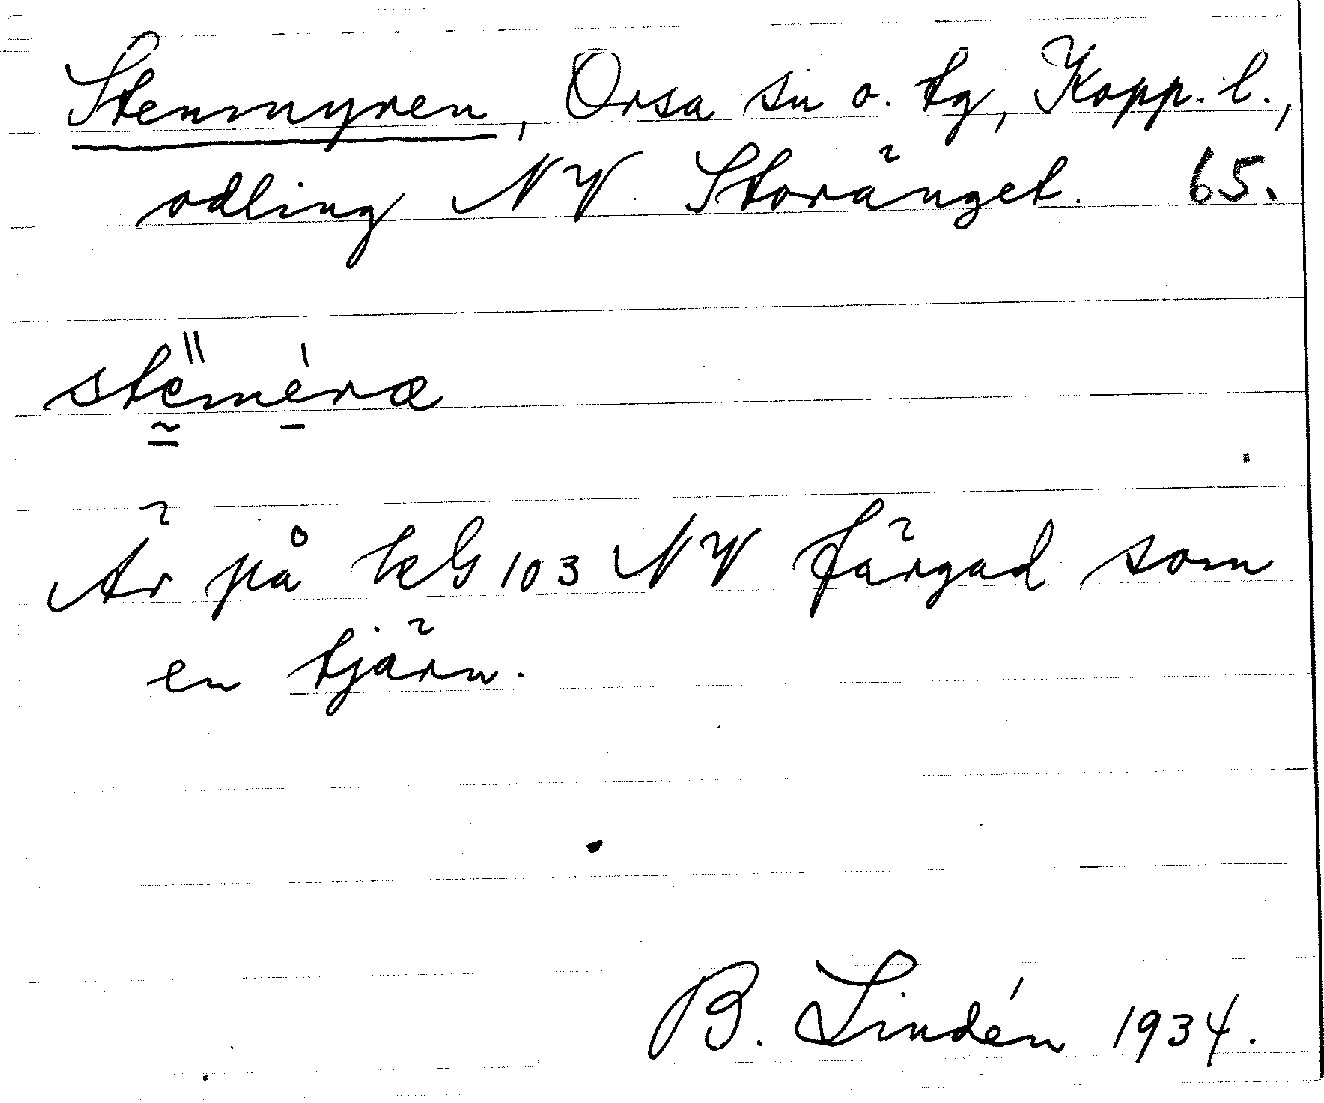 Stenmyren, Orsa sn o. tg, Kopp. l.,
odling NV Storänget. 65.
stëmèræ
Är på kG 103 NV färgad som
en tjärn.
B. Lindén 1934.